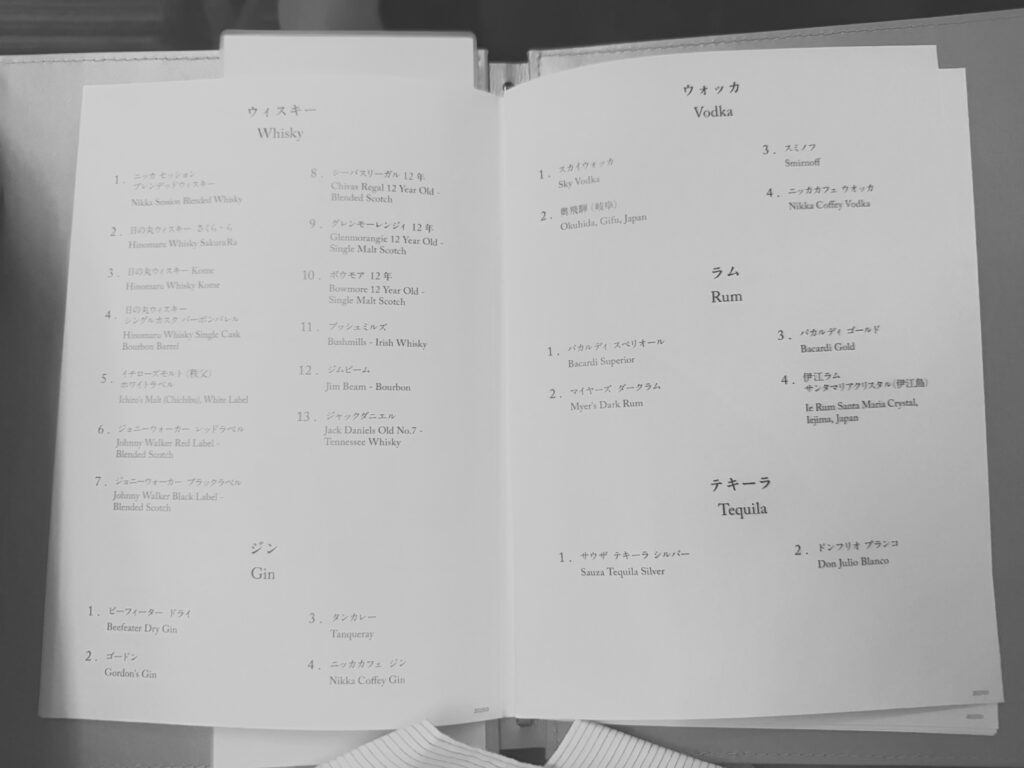 ウィスキー
Whisky
1. ニッカ セッション
ブレンデッドウィスキー
Nikka Session Blended Whisky
2. 日の丸ウィスキー さくら・ら
Hinomaru Whisky SakuraRa
3. 日の丸ウィスキー Kome
Hinomaru Whisky Kome
4. 日の丸ウィスキー
シングルカスク バーボンバレル
Hinomaru Whisky Single Cask
Bourbon Barrel
5. イチローズモルト (秩父)
ホワイトラベル
Ichiro's Malt (Chichibu), White Label
6. ジョニーウォーカー レッドラベル
Johnny Walker Red Label -
Blended Scotch
7. ジョニーウォーカー ブラックラベル
Johnny Walker Black Label -
Blended Scotch
8. シーバスリーガル 12 年
Chivas Regal 12 Year Old -
Blended Scotch
9. グレンモーレンジィ 12 年
Glenmorangie 12 Year Old -
Single Malt Scotch
10. ボウモア 12 年
Bowmore 12 Year Old -
Single Malt Scotch
11. ブッシュミルズ
Bushmills - Irish Whisky
12. ジムビーム
Jim Beam - Bourbon
13. ジャックダニエル
Jack Daniels Old No.7 -
Tennessee Whisky
ジン
Gin
1. ビーフィーター ドライ
Beefeater Dry Gin
2. ゴードン
Gordon's Gin
3. タンカレー
Tanqueray
4. ニッカカフェ ジン
Nikka Coffey Gin
ウォッカ
Vodka
1. スカイウォッカ
Sky Vodka
2. 奥飛騨 (岐阜)
Okuhida, Gifu, Japan
3. スミノフ
Smirnoff
4. ニッカカフェ ウオッカ
Nikka Coffey Vodka
ラム
Rum
1. バカルディ スペリオール
Bacardi Superior
2. マイヤーズ ダークラム
Myer's Dark Rum
3. バカルディ ゴールド
Bacardi Gold
4. 伊江ラム
サンタマリアクリスタル(伊江島)
Ie Rum Santa Maria Crystal,
Iejima, Japan
テキーラ
Tequila
1. サウザ テキーラ シルバー
Sauza Tequila Silver
2. ドンフリオ ブランコ
Don Julio Blanco